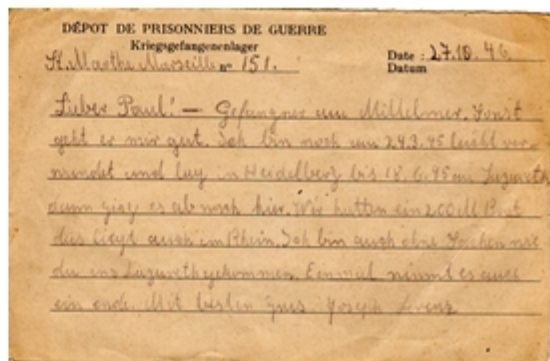 DÉPOT DE PRISONNIERS DE GUERRE
Kriegsgefangenenlager
St. Marthe Marseille nº 151.
Date : 27.10.46
Datum
Lieber Paul! — Gefangner am Mittelmer. Sonst
geht er mir gut. Ich bin noch am 24.3.45 leicht ver-
wundet und lag in Heidelberg bis 18.6.45 im Lazareth
dann ging es ab nach hier. Wir hatten ein 200M Boot
das liegt auch im Rhein. Ich bin auch ohne
ins Lazareth gekommen. Eenmal nimmt es auch
ein ende. Mit besten Grus. Joseph Arenz